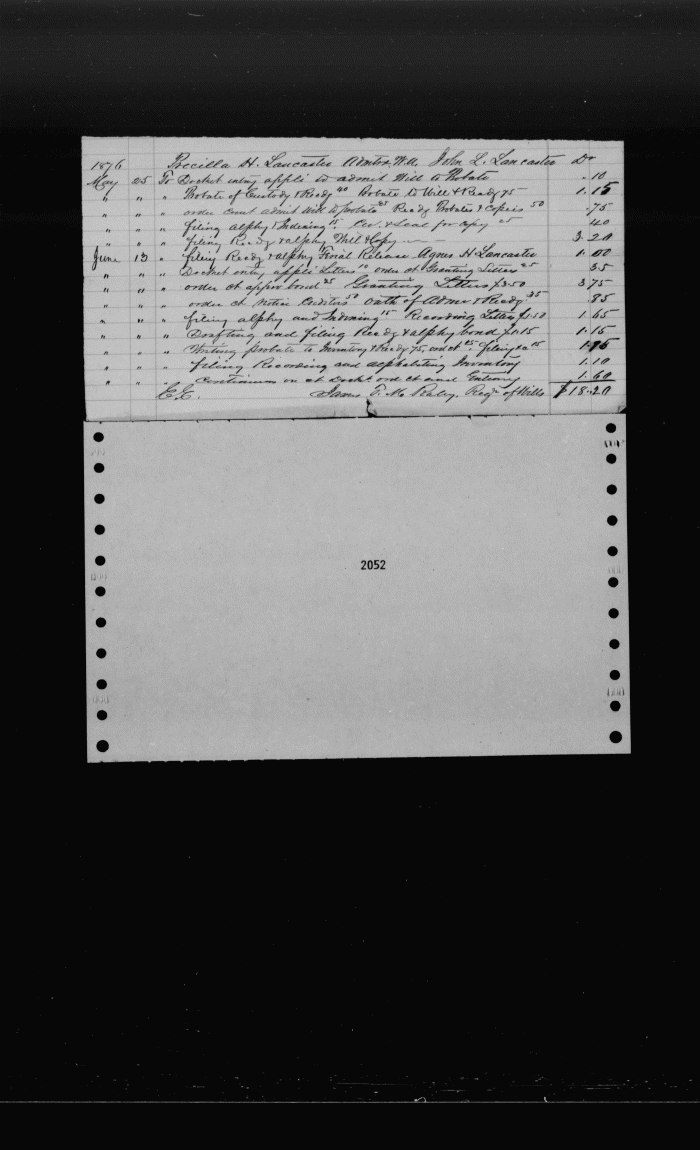 1876 Priscilla H. Lancaster Admtrx W.A. John L. Lancaster Dr
May 25 To Docket entry appli to admit Will to Probate .10
" " " Probate of Custody & Recdg 40 Probate to Will & Recdg 75 1.15
" " " order Court admit Will to probate 25 Recdg Probates & Copies 50 .75
" " " filing alphg & Indexing 15 Cer. & Seal for copy 25 40
" " " filing Recdg & alphg Will & Copy 3.20
June 13 " filing Recdg & alphg Final Release Agnes H Lancaster 1.00
" " " Docket entry appli Letters 10 order ct Granting Letters 25 35
" " " order ct appro bond 25 Granting Letters $3.50 3.75
" " " order ct Notice Creditors 50 Oath of Admx & Recdg 35 .85
" " " filing alphg and Indexing 15 Recording Letters $1.50 1.65
" " " Drafting and filing Recdg & alphg bond $1.15 1.15
" " " Writing probate to Inventory & Recdg 75, ord ct 25, filing
" " " filing Recording and alphabeting Inventory 1.10
" " " Continuances on ct Docket ord ct and Entering 1.60
E.E. James T. M. Raley. Regr of Wills $18.20
2052